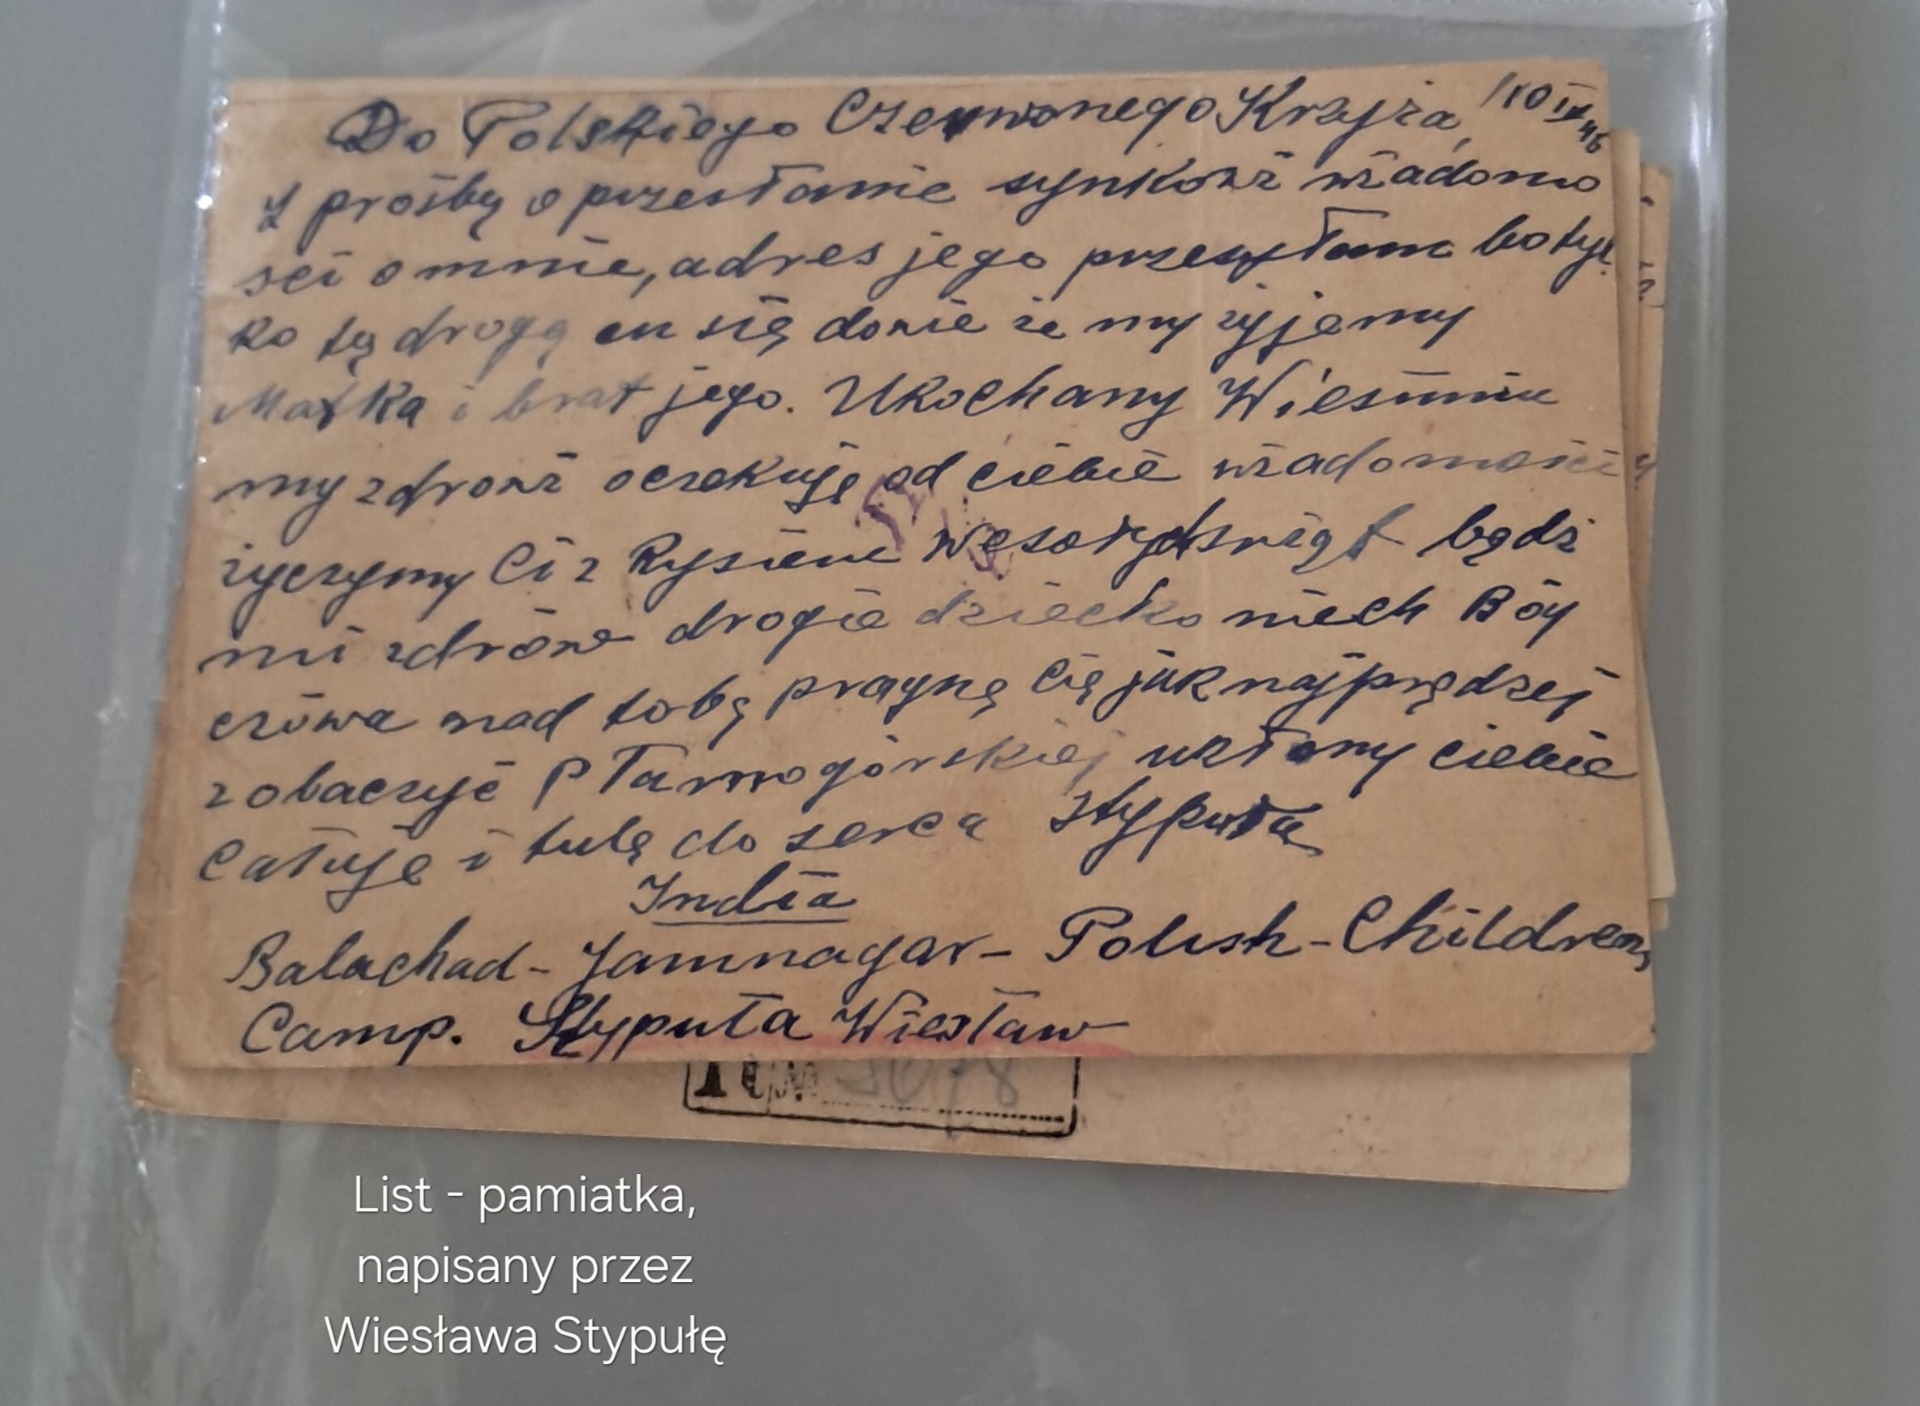 Do Polskiego Czerwonego Krzyża, 10 IV 46
Z prośbą o przesłanie synkowi wiadomo
ści o mnie, adres jego przesyłam bo tyl
ko tą drogą on się dowie że my żyjemy
Matka i brat jego. Ukochany Wiesiuniu
my zdrowi oczekuję od ciebie wiadomości
życzymy Ci z Rysiem wesołych świąt bądź
mi zdrów drogie dziecko niech Bóg
czówa nad tobą pragnę Cię jak najprędzej
zobaczyć P Tarnogórskiej ciebie
Całuję i tulę do serca Stypuła
India
Balachad - Jamnagar - Polish - Childrens
Camp. Stypuła Wiesław
List - pamiatka,
napisany przez
Wiesława Stypułę